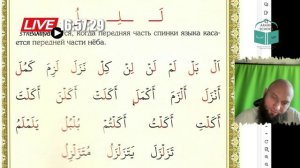 LIVE 16:57:29
لَـ ـلِـ ـلُ
когда передняя часть спинки языка каса-
ется передней части нёба.
اَلْ بَلْ لَمْ لَنْ لِنْ كُلْ نَزَلَ لَزِمَ كَمُلَ
اَنْزَلَ اَلْزَمَ اَكْمَلَ اَكَلَ اَكَلَتْ اَكَلْتَ
اَكَلْتِ اَكَلْتُ اَكَلْتُمْ بُلْبُلٌ يَلَمْلَمُ
تَزَلْزَلَ يَتَزَلْزَلُ مُتَزَلْزِلٌ